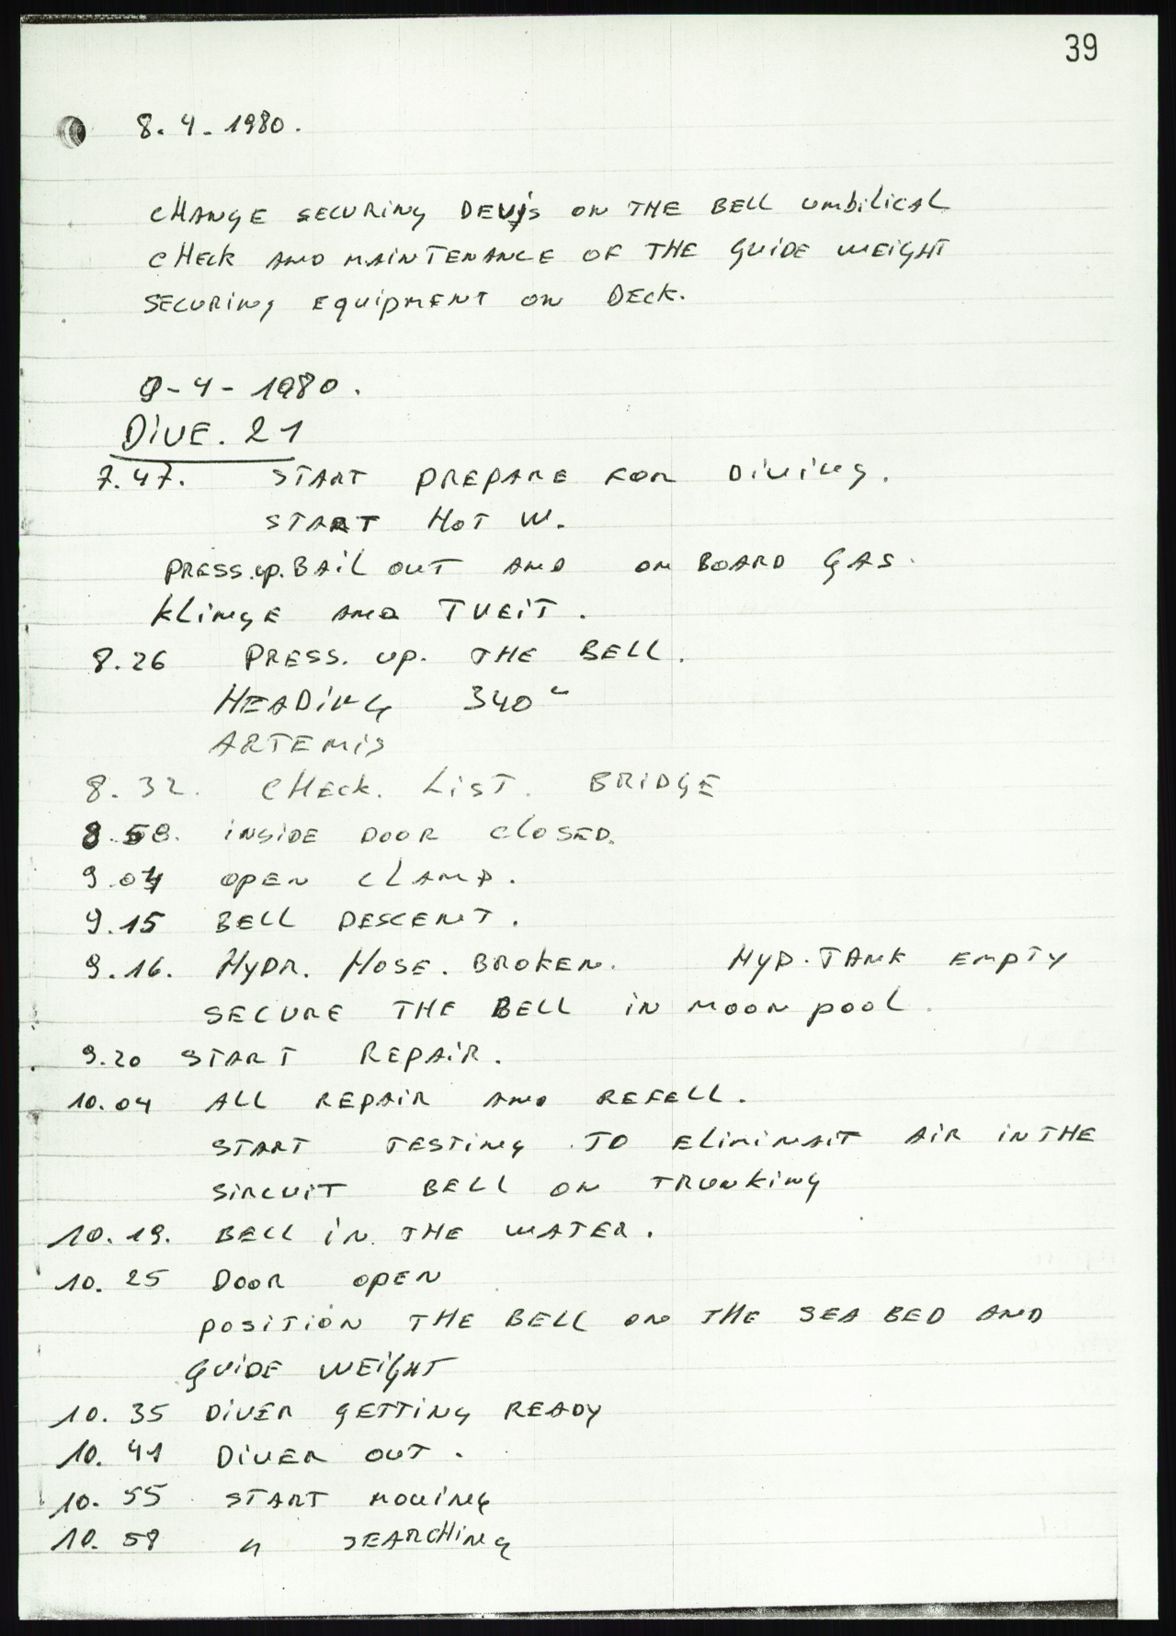 39
8.4-1980.
CHANGE SECURING DEVIS ON THE BELL UMBILICAL
CHECK AND MAINTENANCE OF THE GUIDE WEIGHT
SECURING EQUIPMENT ON DECK.
9-4-1980.
DIVE. 21
7.47. START PREPARE FOR DIVING.
START HOT W.
PRESS.UP. BAIL OUT AND ON BOARD GAS.
KLINGE AND TVEIT.
8.26 PRESS. UP. THE BELL.
HEADING 340°
ARTEMIS
8.32. CHECK. LIST. BRIDGE
8.58. INSIDE DOOR CLOSED.
9.04 OPEN CLAMP.
9.15 BELL DESCENT.
9.16. HYDR. HOSE. BROKEN. HYD. TANK EMPTY
SECURE THE BELL IN MOON POOL.
9.20 START REPAIR.
10.04 ALL REPAIR AND REFELL.
START TESTING TO ELIMINAIT AIR IN THE
SIRCUIT BELL ON TRUNKING
10.19. BELL IN THE WATER.
10.25 DOOR OPEN
POSITION THE BELL ON THE SEA BED AND
GUIDE WEIGHT
10.35 DIVER GETTING READY
10.41 DIVER OUT.
10.55 START MOVING
10.58 " SEARCHING